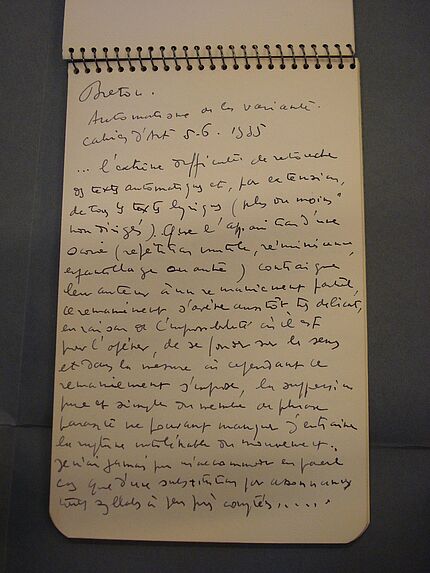 Breton.
Automatisme de la variante.
Cahiers d'Art 5-6. 1935
... l'extrême difficulté de retouche
des textes automatiques et, par extension,
de tous les textes lyriques (plus ou moins
non dirigés). Que l'apparition d'une
scorie (répétition inutile, réminiscence,
enfantillage ou autre) contraigne
leur auteur à un remaniement partiel,
ce remaniement s'avère aussitôt très délicat,
en raison de l'impossibilité où il est
pour l'opérer, de se fonder sur le sens
et dans la mesure où cependant ce
remaniement s'impose, la suppression
pure et simple du membre de phrase
parasite ne pouvant manquer d'entraîner
la rupture intolérable du mouvement.
Je n'ai jamais pu m'accommoder en pareil
cas que d'une substitution par assonances
syllabes à peu près comptées.....